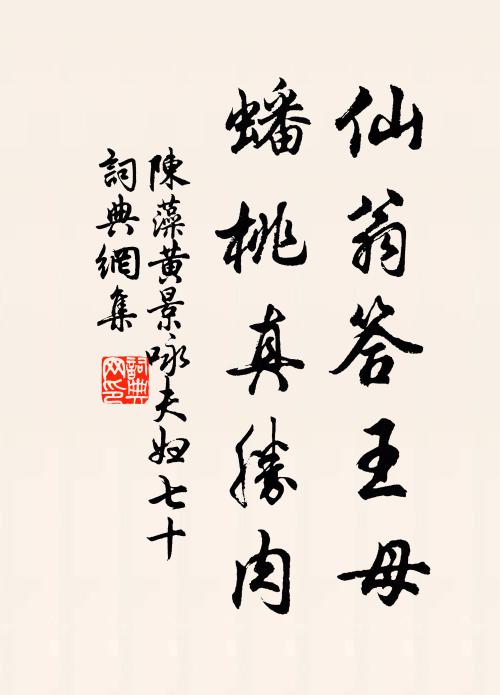 仙翁答王母
蟠桃真勝肉
陳藻黄景咏夫妇七十
詞典網集
詞典网印